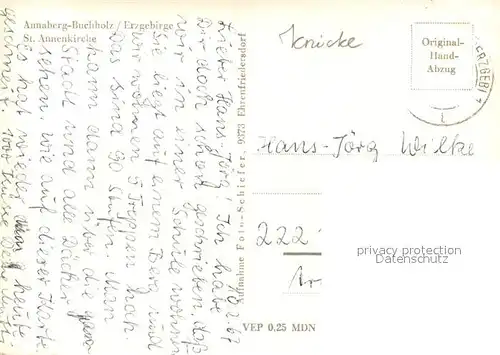 Annaberg-Buchholz / Erzgebirge
St. Annenkirche
10.2.67
Lieber Hans-Jörg! Ich habe
Dir doch schon geschrieben, daß
wir in einer Schule wohnen
Sie liegt auf einem Berg und
Wir wohnen 5 Treppen hoch.
Das sind 90 Stufen. Man
kann dann über die ganze
Stadt und alle Dächer
sehen, wie auf dieser Karte
Es hat wieder heute
geschneit. Deine Mutti
Aufnahme Foto-Schiefer, 9373 Ehrenfriedersdorf
VEP 0,25 MDN
Knicke
Original-
Hand-
Abzug
ERZGEB
Hans-Jörg Wilke
222
privacy protection
Datenschutz